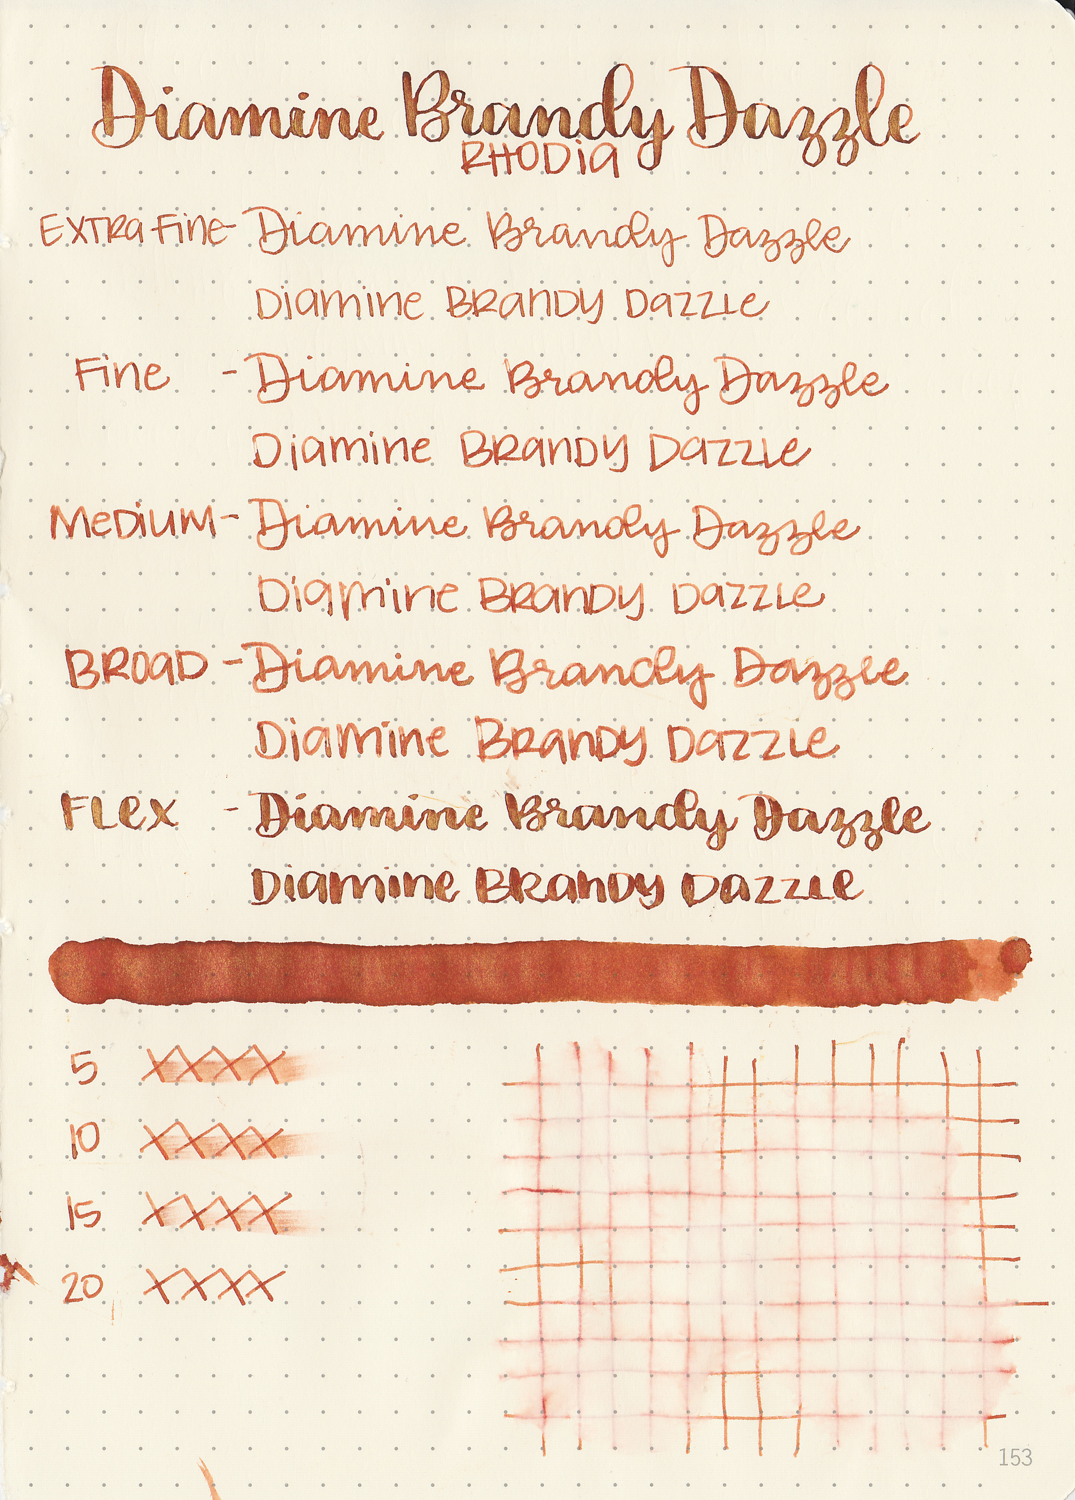 Diamine Brandy Dazzle
RHODIA
EXTRA Fine - Diamine Brandy Dazzle
Diamine BRanDY Dazzle
Fine - Diamine Brandy Dazzle
Diamine BRANDY Dazzle
Medium - Diamine Brandy Dazzle
Diamine BRanDY Dazzle
BROAD - Diamine Brandy Dazzle
Diamine BRanDY Dazzle
FLex - Diamine Brandy Dazzle
Diamine BRanDY Dazzle
5 XXXX
10 XXXX
15 XXXX
20 XXXX
153